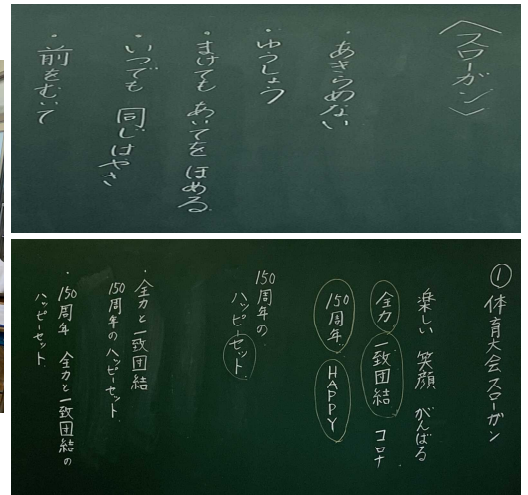 〈スローガン〉
・あきらめない
・ゆうしょう
・まけても あいてを ほめる
・いつでも 同じはやさ
・前をむいて
① 体育大会スローガン
楽しい 笑顔 がんばる
全力 一致団結 コロナ
150周年 HAPPY
150周年の
ハッピーセット
・全力と一致団結
150周年のハッピーセット
・150周年 全力と一致団結の
ハッピーセット